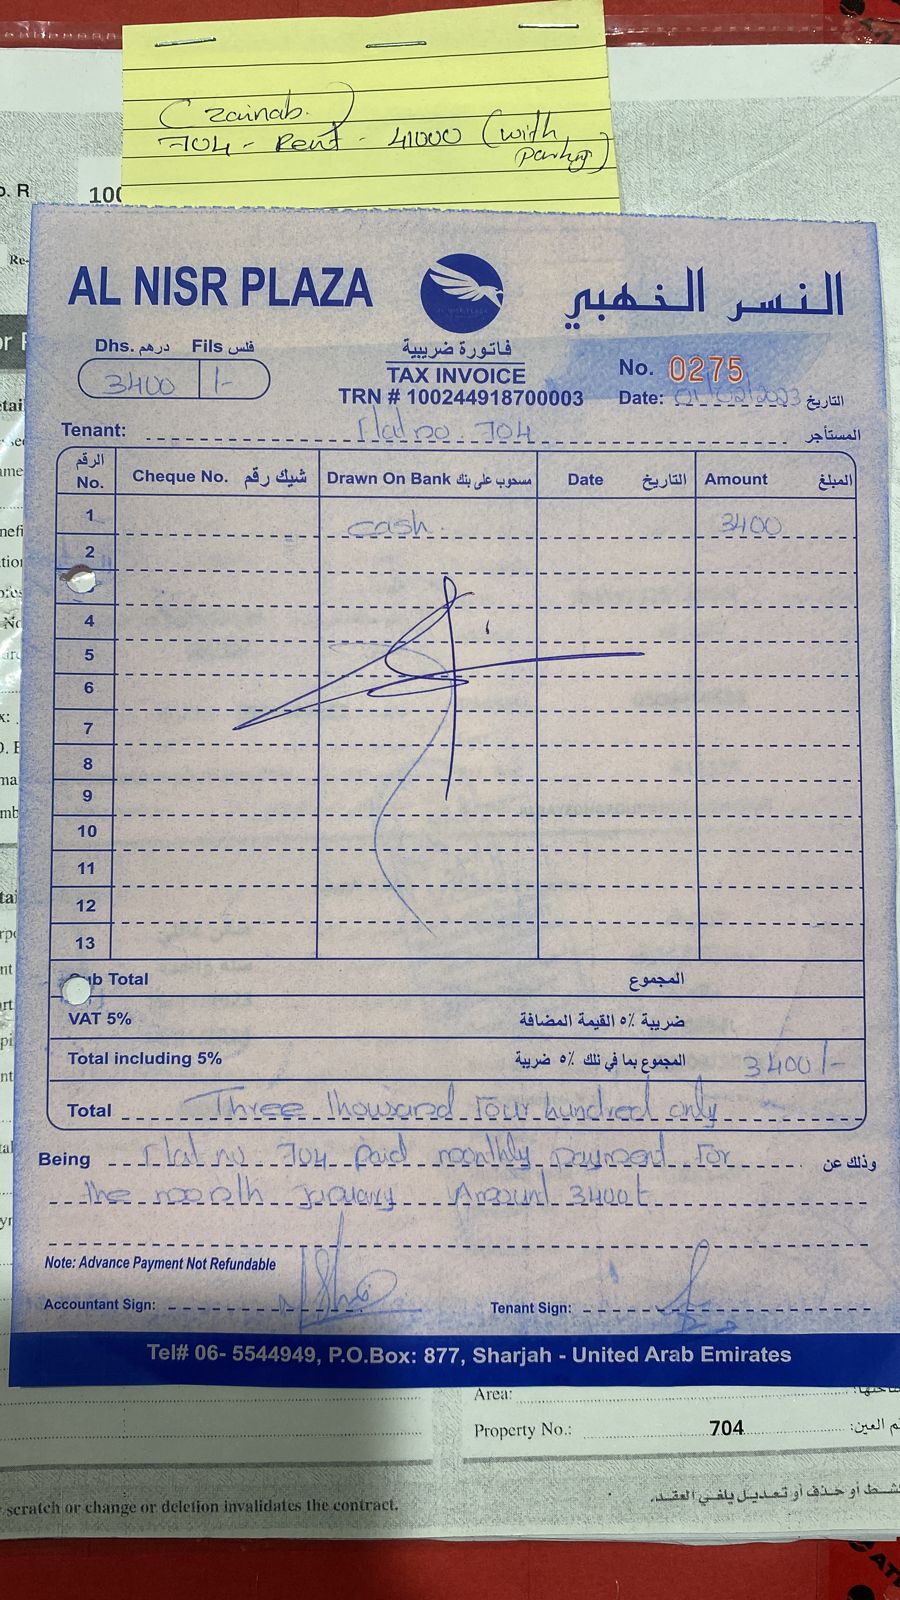 (zainab.)
704 - Rent - 41000 (with
parking)
o. R
100
Re-
or
AL NISR PLAZA
النسر الذهبي
Dhs. درهم Fils فلس
3400 /-
فاتورة ضريبية
TAX INVOICE
TRN # 100244918700003
No. 0275
Date: 01/02/2023 التاريخ
Tenant: Flat no 704 المستأجر
الرقم No. Cheque No. شيك رقم Drawn On Bank مسحوب على بنك Date التاريخ Amount المبلغ
1 cash 3400
2
4
5
6
7
8
9
10
11
12
13
Sub Total المجموع
VAT 5% ضريبة ٥٪ القيمة المضافة
Total including 5% المجموع بما في ذلك ٥٪ ضريبة 3400/-
Total Three thousand Four hundred only
Being Flat no 704 paid monthly payment For وذلك عن
the month january Amount 3400
Note: Advance Payment Not Refundable
Accountant Sign:
Tenant Sign:
Tel# 06- 5544949, P.O.Box: 877, Sharjah - United Arab Emirates
Area:
Property No.: 704
scratch or change or deletion invalidates the contract.
أو حذف أو تعديل يلغي العقد.